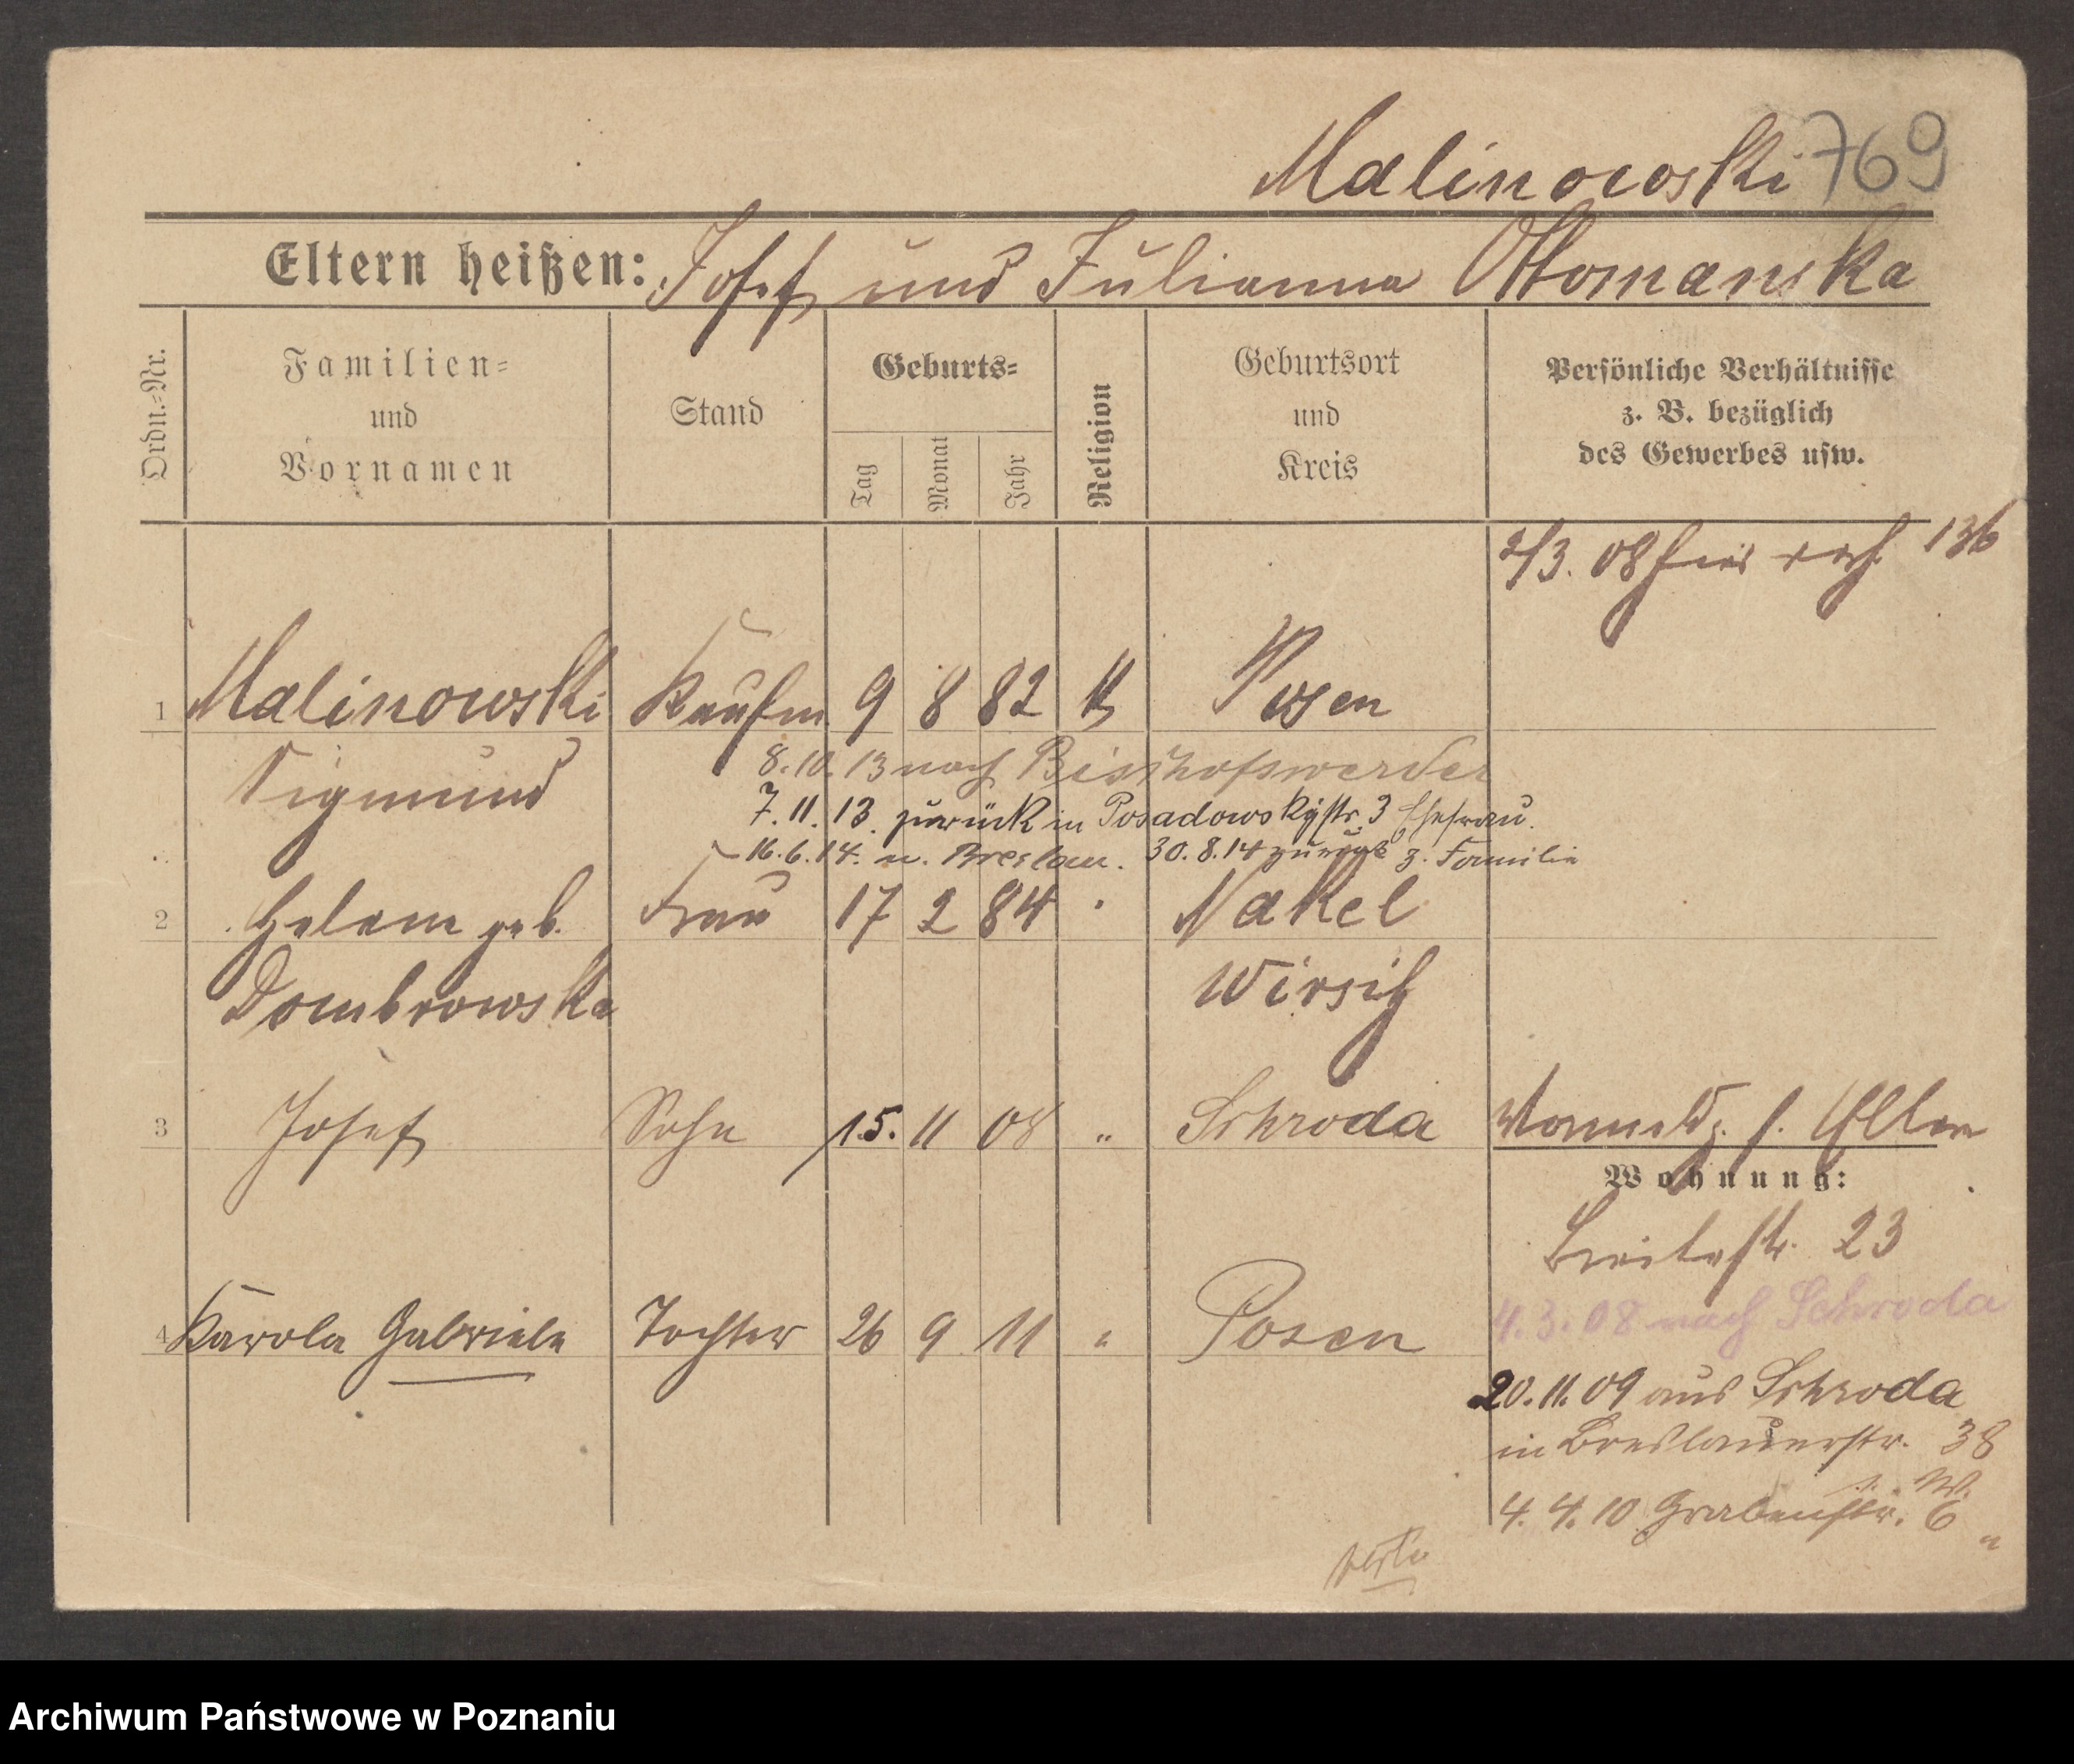 Malinowski 769
Eltern heißen: Josef und Julianna Ottomanska
Ordn.-Nr.
Familien-
und
Vornamen
Stand
Geburts-
Tag
Monat
Jahr
Religion
Geburtsort
und
Kreis
Persönliche Verhältnisse
z. B. bezüglich
des Gewerbes usw.
2/3. 08 hier verh. 136
1 Malinowski Kaufm. 9 8 82 K Posen
Sigmund
8.10.13 nach Bischofswerder
7.11.13. zurück in Posadowskystr. 3 Ehefrau.
16.6.14. n. Breslau. 30.8.14 zurück z. Familie
2 Helene geb. Frau 17 2 84 " Nakel
Dombrowska Wirsitz
3 Josef Sohn 15. 11 08 " Schroda
Wohnung:
Breitestr. 23
4.3.08 nach Schroda
4 Karola Gabriele Tochter 26 9 11 " Posen
20.11.09 aus Schroda
in Breslauerstr. 38
4.4.10 Grabenstr. 6
Archiwum Państwowe w Poznaniu